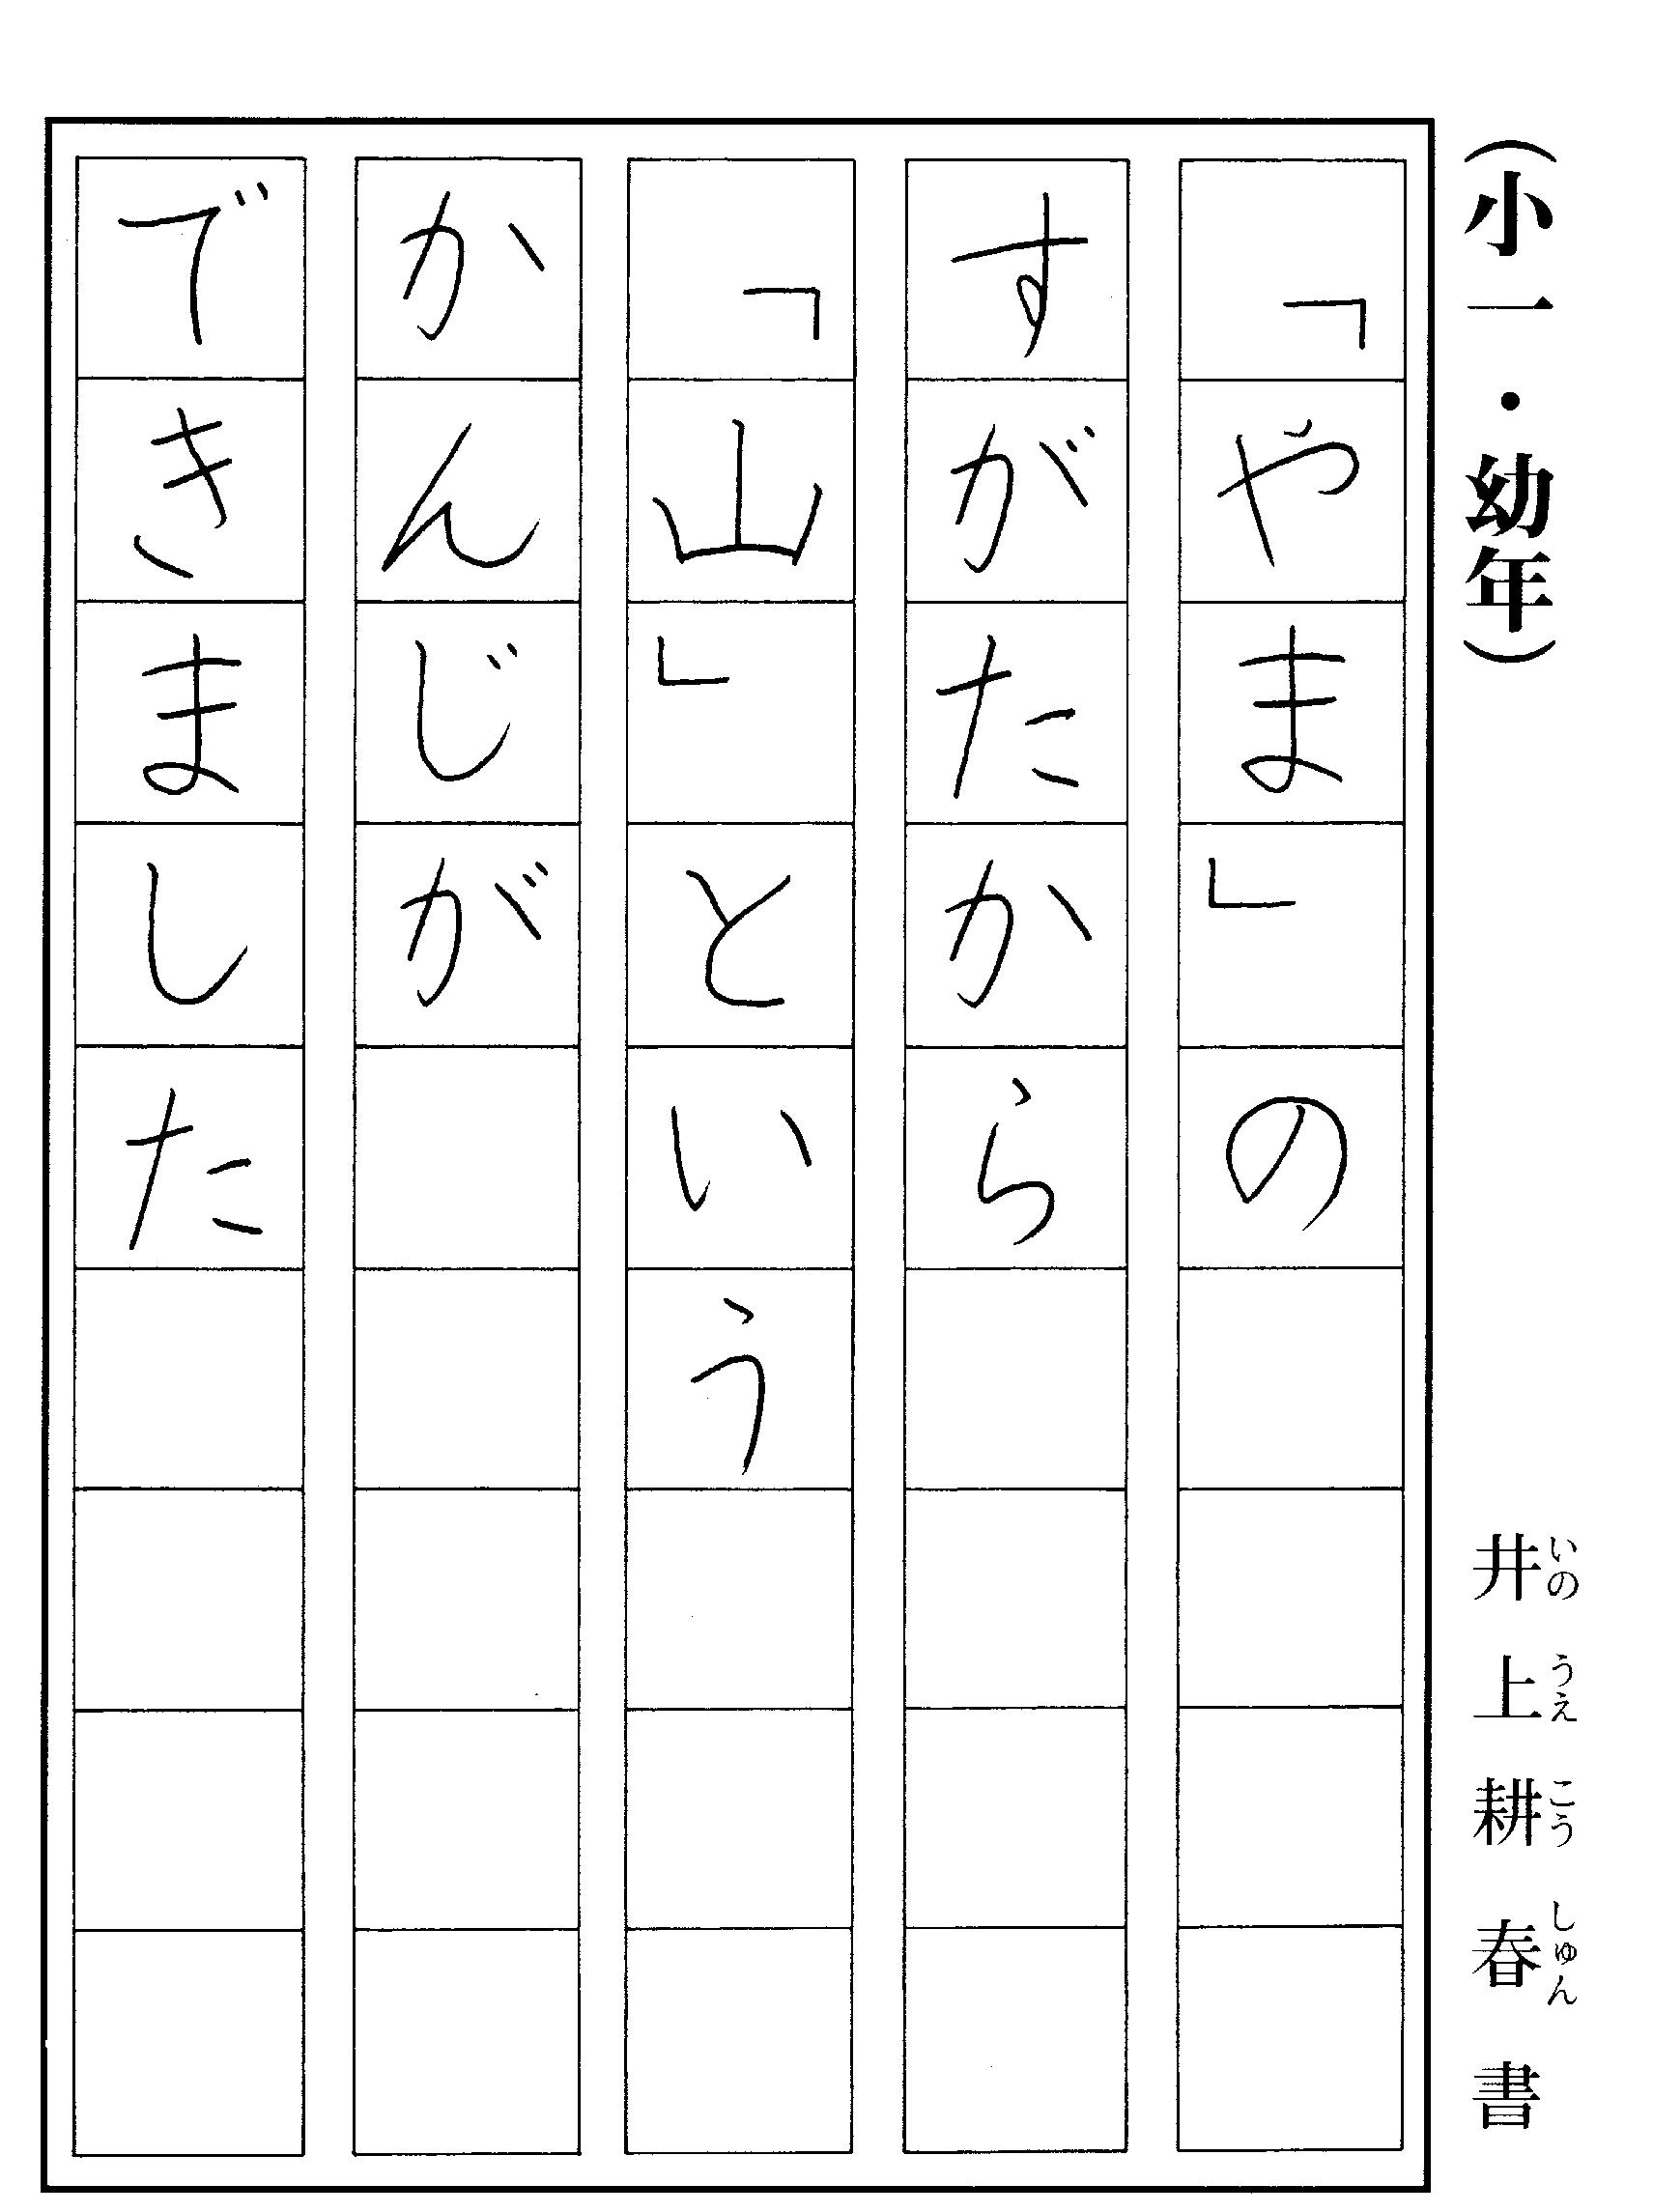 （小一・幼年）
井上耕春書
いのうえこうしゅん
「やま」の
すがたから
「山」という
かんじが
できました